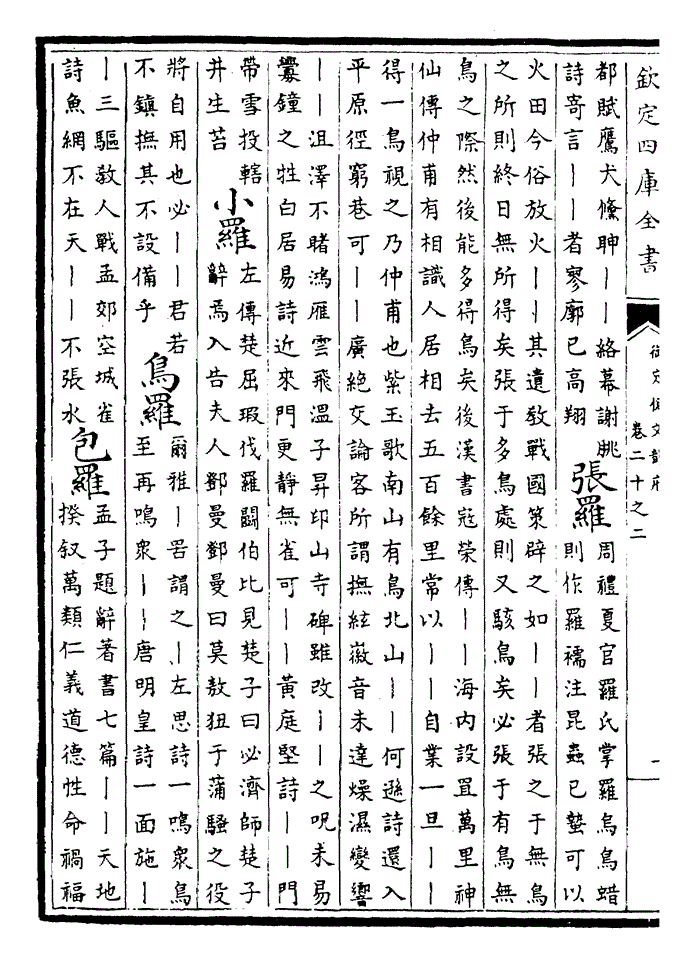 欽定四庫全書
御定佩文韻府
卷二十之二
一
都賦鷹犬倏眒｜｜絡幕謝朓
詩寄言｜｜者寥廓已高翔
張羅
周禮夏官羅氏掌羅烏鳥蜡
則作羅襦注昆蟲已蟄可以
火田今俗放火｜｜其遺教戰國策辟之如｜｜者張之于無鳥
之所則終日無所得矣張于多鳥處則又駭鳥矣必張于有鳥無
鳥之際然後能多得鳥矣後漢書寇榮傳｜｜海内設罝萬里神
仙傳仲甫有相識人居相去五百餘里常以｜｜自業一旦｜｜
得一鳥視之乃仲甫也紫玉歌南山有鳥北山｜｜何遜詩還入
平原徑窮巷可｜｜廣絶交論客所謂撫絃徽音未達燥濕變響
｜｜沮澤不睹鴻雁雲飛溫子昇印山寺碑雖改｜｜之呪未易
釁鐘之牲白居易詩近來門更靜無雀可｜｜黃庭堅詩｜｜門
帶雪投轄
井生苔
小羅
左傳楚屈瑕伐羅鬬伯比見楚子曰必濟師楚子
辭焉入告夫人鄧曼鄧曼曰莫敖狃于蒲騷之役
將自用也必｜｜君若
不鎮撫其不設備乎
鳥羅
爾雅｜罟謂之｜左思詩一鳴衆鳥
至再鳴衆｜｜唐明皇詩一面施｜
｜三驅教人戰孟郊空城雀
詩魚網不在天｜｜不張水
包羅
孟子題辭著書七篇｜｜天地
揆叙萬類仁義道德性命禍福